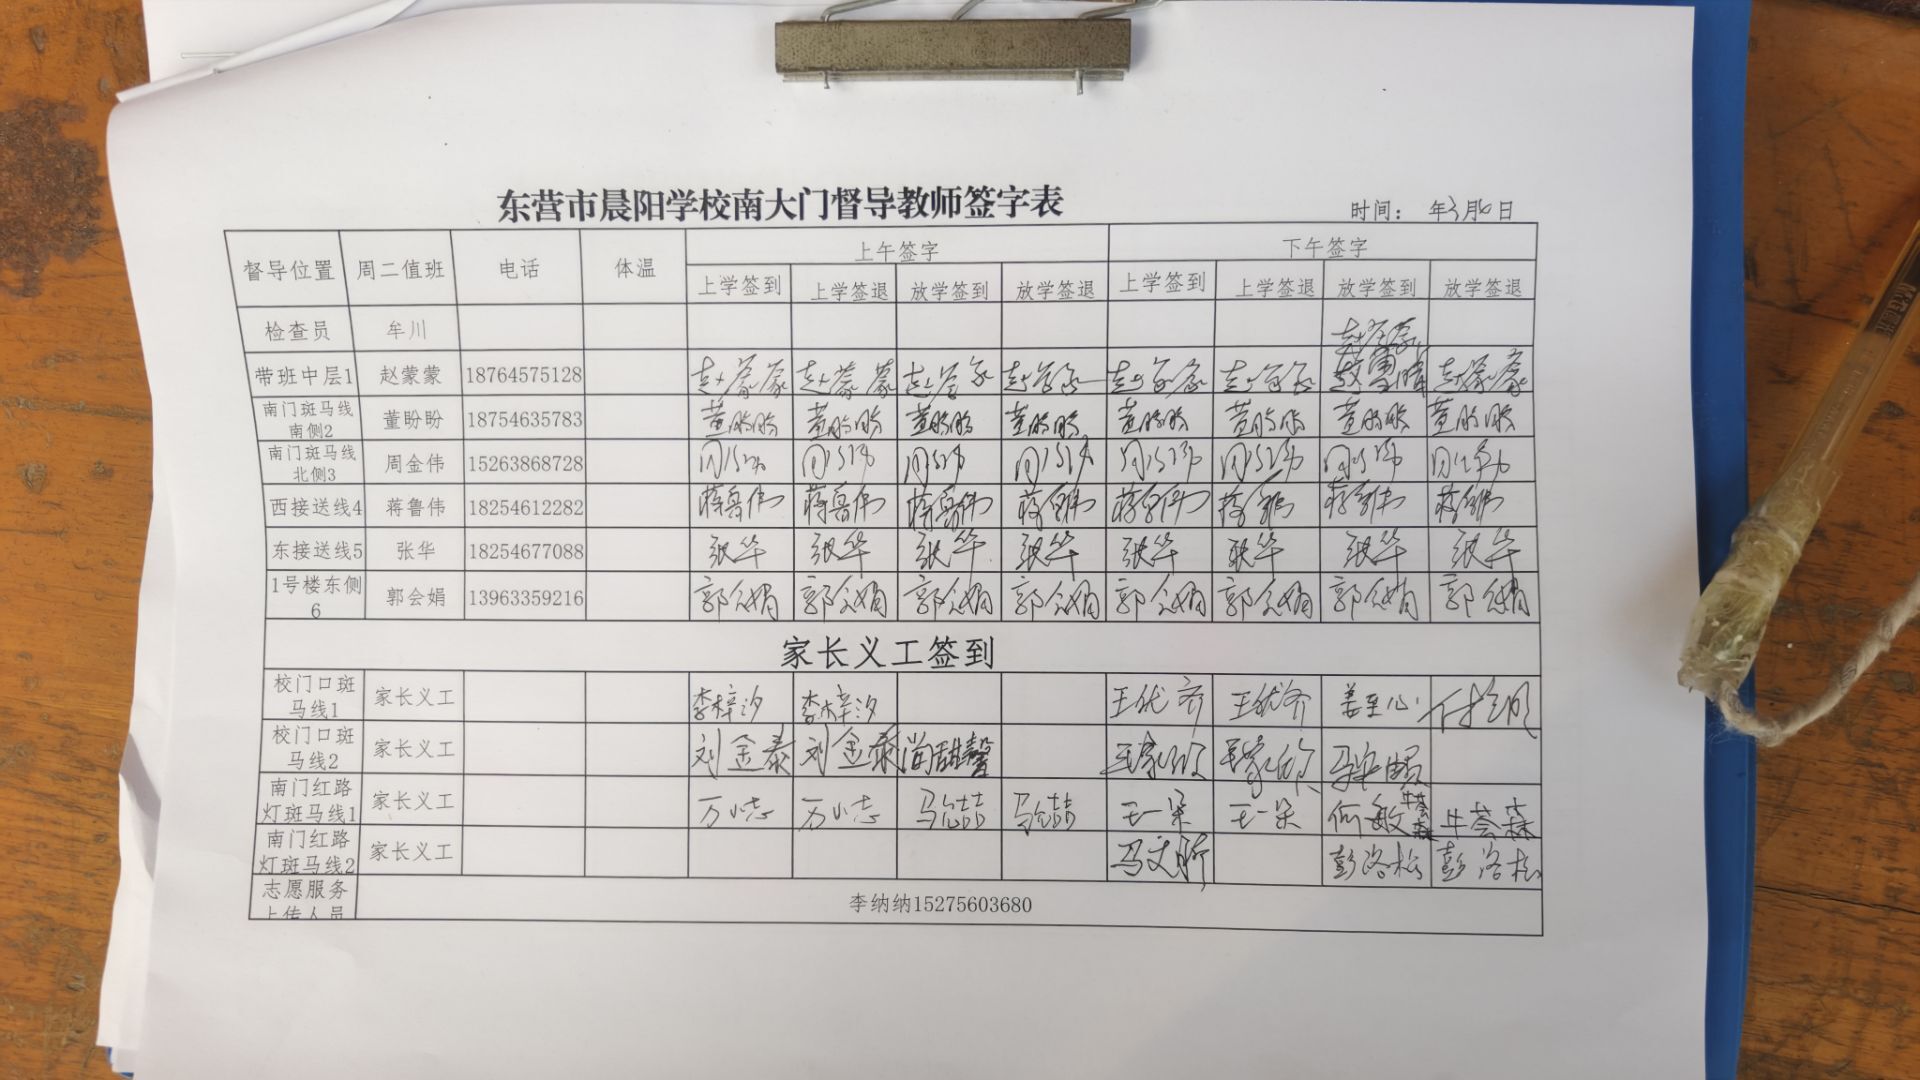 东营市晨阳学校南大门督导教师签字表
时间： 年3月6日
督导位置 周二值班 电话 体温 上午签字 下午签字
上学签到 上学签退 放学签到 放学签退 上学签到 上学签退 放学签到 放学签退
检查员 牟川
带班中层1 赵蒙蒙 18764575128 赵蒙蒙 赵蒙蒙 赵蒙蒙 赵蒙蒙 赵蒙蒙 赵蒙蒙 赵蒙蒙
南门斑马线
南侧2 董盼盼 18754635783 董盼盼 董盼盼 董盼盼 董盼盼 董盼盼 董盼盼 董盼盼 董盼盼
南门斑马线
北侧3 周金伟 15263868728 周金伟 周金伟 周金伟 周金伟 周金伟 周金伟 周金伟 周金伟
西接送线4 蒋鲁伟 18254612282 蒋鲁伟 蒋鲁伟 蒋鲁伟 蒋鲁伟 蒋鲁伟 蒋鲁伟 蒋鲁伟 蒋鲁伟
东接送线5 张华 18254677088 张华 张华 张华 张华 张华 张华 张华 张华
1号楼东侧
6 郭会娟 13963359216 郭会娟 郭会娟 郭会娟 郭会娟 郭会娟 郭会娟 郭会娟 郭会娟
家长义工签到
校门口斑
马线1 家长义工 李梓汐 李梓汐 王优齐 王优齐 姜至心
校门口斑
马线2 家长义工 刘金泰 刘金泰 尚甜馨
南门红路
灯斑马线1 家长义工 万小志 万小志 王一朵 王一朵 何敏 牛荟森 牛荟森
南门红路
灯斑马线2 家长义工 彭洛松 彭洛松
志愿服务
上传人员 李纳纳15275603680